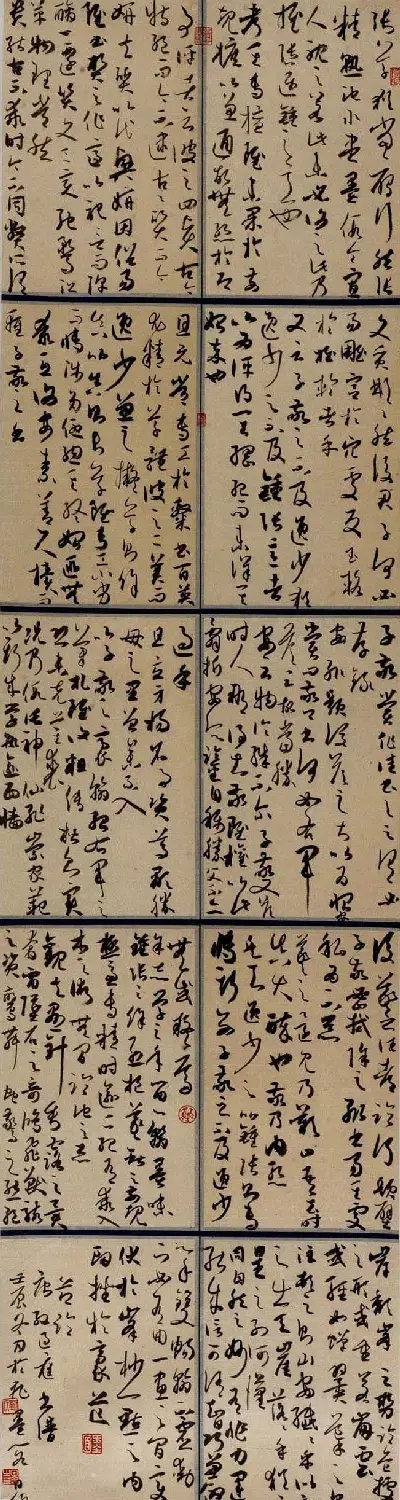 張草猶當雁行然張
精熟池水盡墨假令寡
人耽之若此未必謝之此乃
推張邁鍾之意也
考其專擅雖未果於前
規摭以兼通故無慚於即
事評者云彼之四賢古今
特絕而今不逮古古質而今
妍夫質以代興妍因俗易
雖書契之作適以記言而淳
醨一遷質文三變馳騖沿
革物理常然
貴能古不乖時今不同弊所謂
文質彬彬然後君子何必
易雕宮於穴處反玉輅
於椎輪者乎
又云子敬之不及逸少猶
逸少之不及鍾張意者
以為評得其綱紀而未詳其
始卒也
且元常專工於隸書百英
尤精於草體彼之二美而
逸少兼之擬草則餘
真比真則長草雖專工小劣
而博涉多優總其終始匪無
乖互謝安素善尺牘而
輕子敬之書
子敬嘗作佳書與之謂必
存錄
安輒題後答之甚以為恨安
嘗問敬卿書何如右軍
答云故當勝
安云物論殊不爾子敬又答
時人那得知敬雖權以此
辭折安所鑒自稱勝父不亦
過乎
且立身揚名事資尊顯勝
母之里曾參不入
以子敬之豪翰紹右軍之
筆札雖復粗傳楷則實
恐未克箕裘
況乃假託神仙恥崇家範
以斯成學孰愈面牆
後羲之往都臨行題壁
子敬密拭除之輒書易其處
私為不惡
羲之還見乃歎曰吾去時
真大醉也敬乃內慚
是知逸少之比鍾張則專
博斯別子敬之不及逸少
無或疑焉
余志學之年留心翰墨味
鍾張之餘烈挹羲獻之前規
極慮專精時逾二紀有乖入
木之術無間臨池之志
觀夫懸針垂露之異
奔雷墜石之奇鴻飛獸駭
之資鸞舞蛇驚之態絕
岸頹峰之勢臨危據槁
之形或重若崩雲
或輕如蟬翼導之則泉
注頓之則山安纖纖乎似初月
之出天崖落落乎猶眾
星之列河漢
同自然之妙有非力運之
能成信可謂智巧兼優
心手雙暢翰不虛動
下必有由一畫之間變起
伏於峯杪一點之內
殊衄挫於豪芒
唐孫過庭書譜